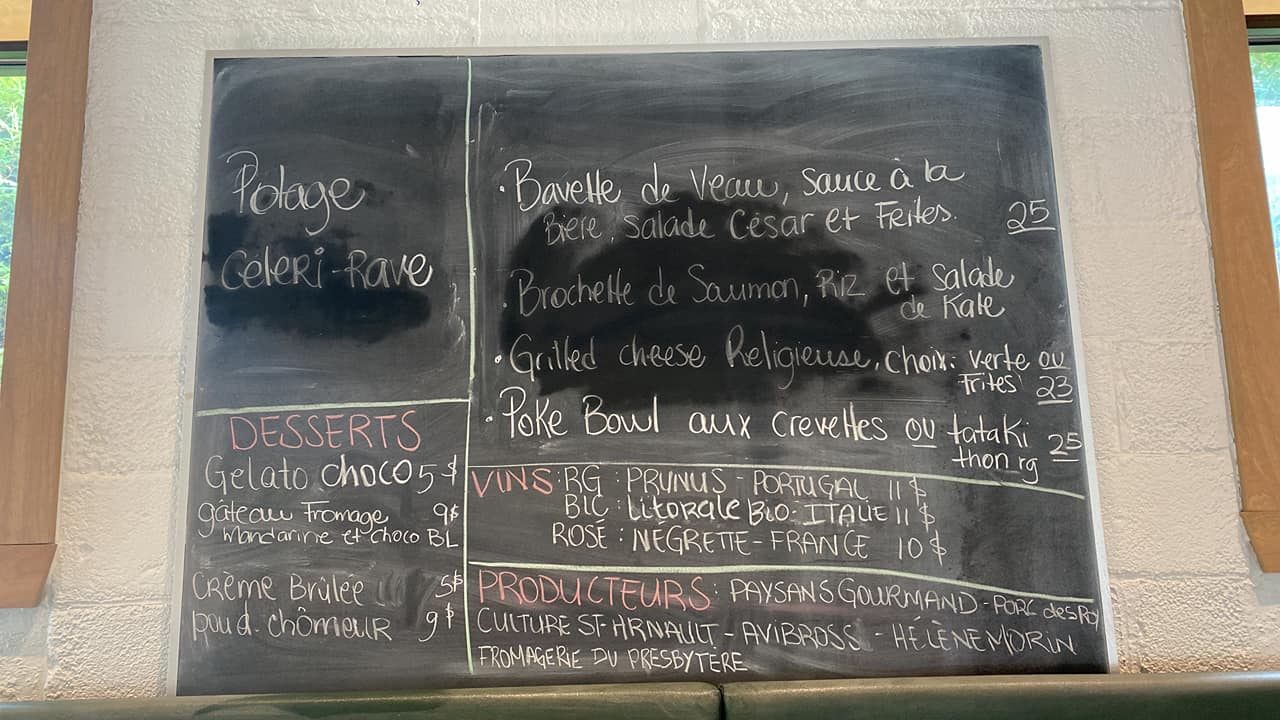 Potage
Céleri-Rave
DESSERTS
Gelato choco 5$
gâteau Fromage 9$
Mandarine et choco BL
Crème Brûlée 5$
poud. chômeur 9$
• Bavette de Veau, sauce à la
Bière, salade César et Frites. 25
• Brochette de Saumon, Riz et Salade
de Kale
• Grilled cheese Religieuse, choix: verte ou
Frites 23
• Poke Bowl aux crevettes ou tataki
thon rg 25
VINS: RG: PRUNUS - PORTUGAL 11$
BLC: Litorale BIO: ITALIE 11$
ROSÉ: NÉGRETTE - FRANCE 10$
PRODUCTEURS: PAYSANS GOURMAND - PORC des
CULTURE ST-ARNAULT - AVIBROSS - HÉLÈNE MORIN
FROMAGERIE DU PRESBYTÈRE